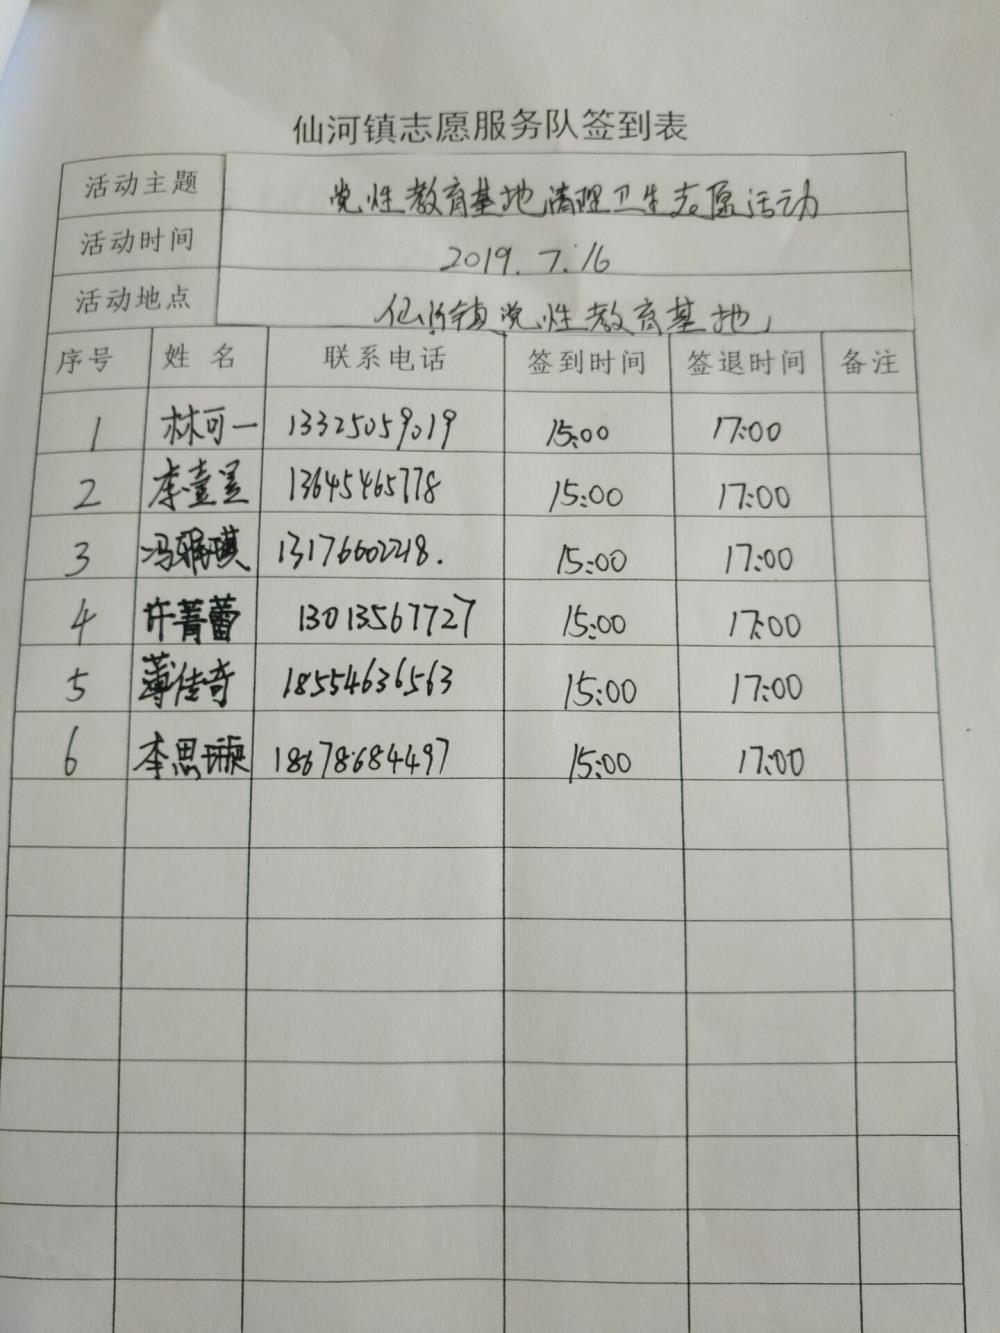 仙河镇志愿服务队签到表
活动主题 党性教育基地清理卫生志愿活动
活动时间 2019.7.16
活动地点 仙河镇党性教育基地
序号 姓名 联系电话 签到时间 签退时间 备注
1 林可一 13325059019 15:00 17:00
2 李壹昱 13645465778 15:00 17:00
3 冯雅琪 13176602218. 15:00 17:00
4 许菁蕾 13013567727 15:00 17:00
5 薄佳奇 18554636563 15:00 17:00
6 李思璇 18678684497 15:00 17:00